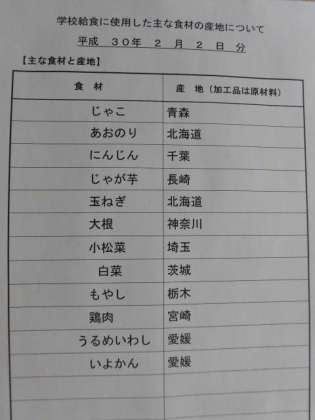 学校給食に使用した主な食材の産地について
平成 30年 2 月 2 日 分
【主な食材と産地】
食 材 産 地（加工品は原材料）
じゃこ 青森
あおのり 北海道
にんじん 千葉
じゃが芋 長崎
玉ねぎ 北海道
大根 神奈川
小松菜 埼玉
白菜 茨城
もやし 栃木
鶏肉 宮崎
うるめいわし 愛媛
いよかん 愛媛